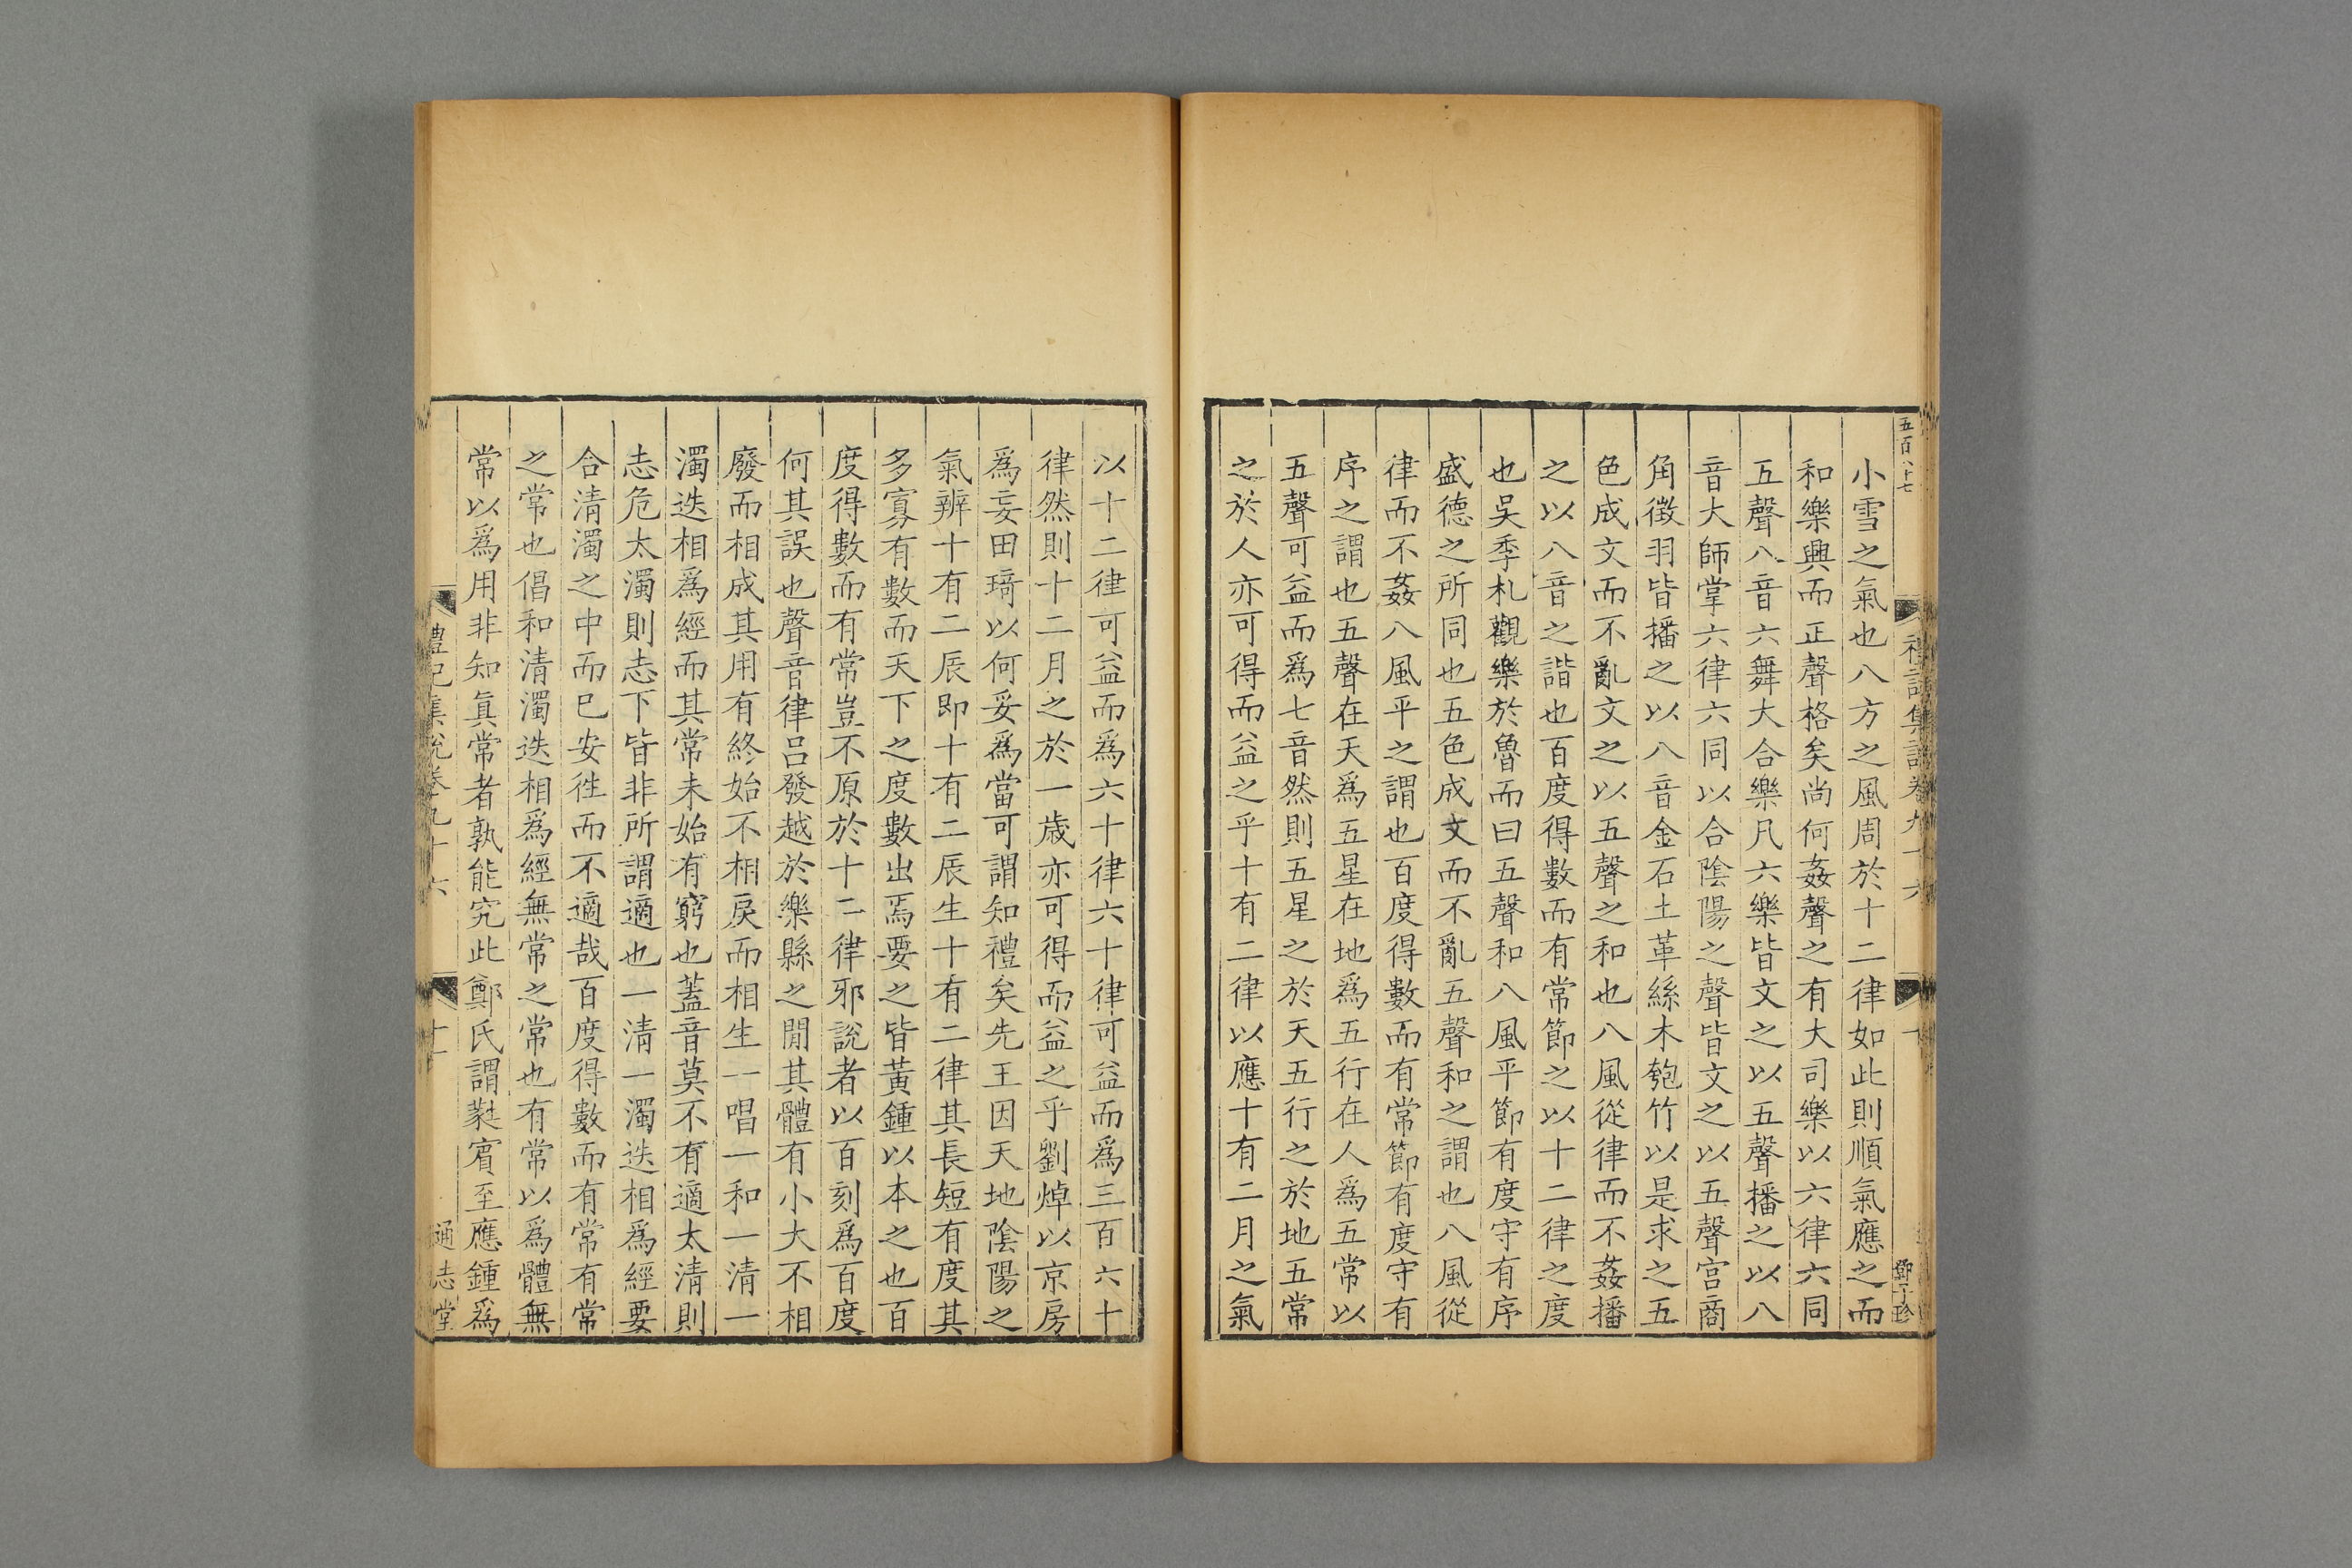 五百八十七
禮記集說卷九十六
十
鄧子珍
小雪之氣也八方之風周於十二律如此則順氣應之而
和樂興而正聲格矣尚何姦聲之有大司樂以六律六同
五聲八音六舞大合樂凡六樂皆文之以五聲播之以八
音大師掌六律六同以合陰陽之聲皆文之以五聲宮商
角徵羽皆播之以八音金石土革絲木匏竹以是求之五
色成文而不亂文之以五聲之和也八風從律而不姦播
之以八音之諧也百度得數而有常節之以十二律之度
也吳季札觀樂於魯而曰五聲和八風平節有度守有序
盛德之所同也五色成文而不亂五聲和之謂也八風從
律而不姦八風平之謂也百度得數而有常節有度守有
序之謂也五聲在天為五星在地為五行在人為五常以
五聲可益而為七音然則五星之於天五行之於地五常
之於人亦可得而益之乎十有二律以應十有二月之氣
以十二律可益而為六十律六十律可益而為三百六十
律然則十二月之於一歲亦可得而益之乎劉焯以京房
為妄田琦以何妥為當可謂知禮矣先王因天地陰陽之
氣辨十有二辰即十有二辰生十有二律其長短有度其
多寡有數而天下之度數出焉要之皆黃鍾以本之也百
度得數而有常豈不原於十二律邪說者以百刻為百度
何其誤也聲音律呂發越於樂縣之閒其體有小大不相
廢而相成其用有終始不相戾而相生一唱一和一清一
濁迭相為經而其常未始有窮也蓋音莫不有適太清則
志危太濁則志下皆非所謂適也一清一濁迭相為經要
合清濁之中而已安徃而不適哉百度得數而有常有常
之常也倡和清濁迭相為經無常之常也有常以為體無
常以為用非知真常者孰能究此鄭氏謂蕤賓至應鍾為
禮記集說卷九十六
十一
通志堂